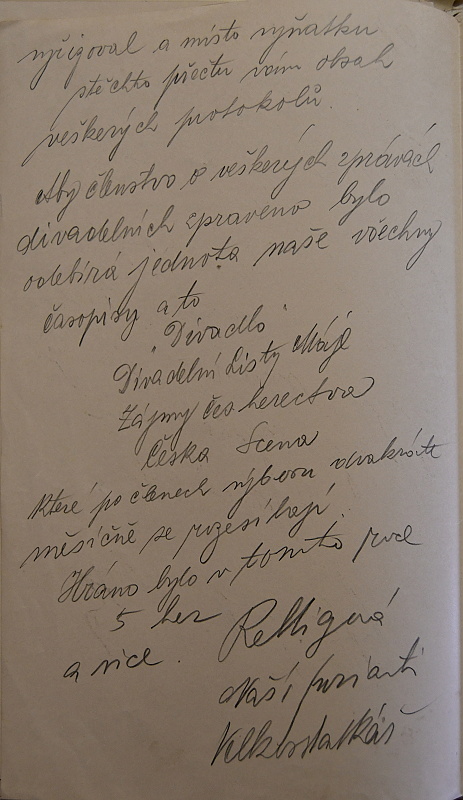 vyřizoval a místo výňatku
z těchto přečtu vám obsah
veškerých protokolů.
Aby členstvo o veškerých zprávách
divadelních zpraveno bylo
odebírá jednota naše všechny
časopisy a to
"Divadlo"
Divadelní Listy Máje
Zájmy čes herectva
Česka Scena
které po členech výboru dvakráte
měsíčně se rozesílají.
Hráno bylo v tomto roce
5 her
a sice. Relligená
Naší furianti
Velkostatkář